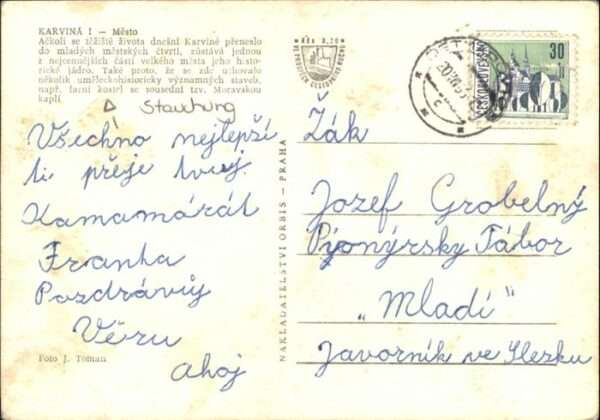 KARVINÁ I — Město
Ačkoli se těžiště života dnešní Karviné přeneslo
do mladých městských čtvrtí, zůstává jednou
z nejcennějších částí velkého města jeho histo-
rické jádro. Také proto, že se zde uchovalo
několik uměleckohistoricky významných staveb,
např. farní kostel se sousední tzv. Moravskou
kaplí
Všechno nejlepší
ti přeje tvůj
Kamamárát
Franta
Pozdrávůj
Věru
ahoj
Foto J. Toman
NAKLADATELSTVÍ ORBIS — PRAHA
Kčs 0,20
ČESKOSLOVENSKO
30
h
Žák
Jozef Grobelný
Pyonýrsky Tábor
„Mladí"
Javorník ve Slezku